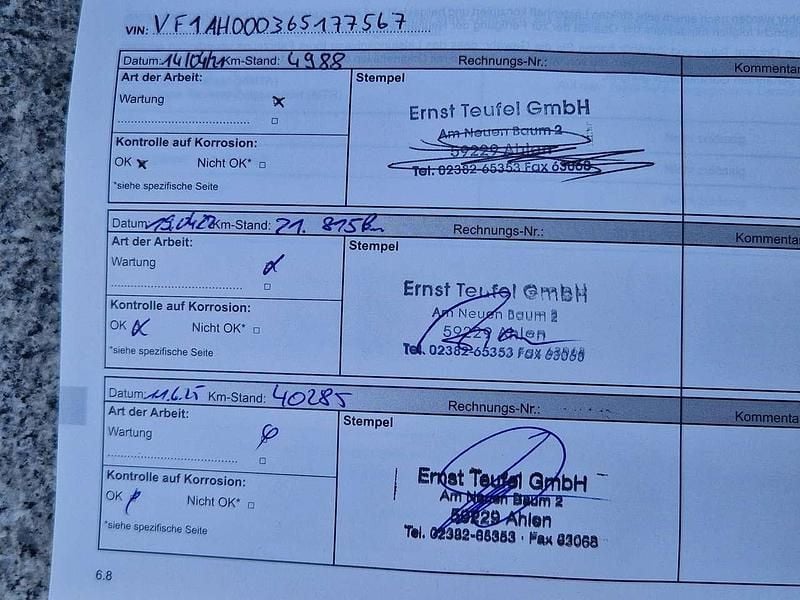 VIN: VF1AH000365177567
Datum: Km-Stand: 4988 Rechnungs-Nr.: Kommentar
Art der Arbeit: Stempel
Wartung x
Kontrolle auf Korrosion:
OK x Nicht OK*
*siehe spezifische Seite
Ernst Teufel GmbH
Am Neuen Baum 2
59229 Ahlen
Tel. 02382-65353 Fax 63068
Datum: Km-Stand: 21.815km Rechnungs-Nr.: Kommenta
Art der Arbeit: Stempel
Wartung x
Kontrolle auf Korrosion:
OK x Nicht OK*
*siehe spezifische Seite
Ernst Teufel GmbH
Am Neuen Baum 2
59229 Ahlen
Tel. 02382-65353 Fax 63068
Datum: 11.6.25 Km-Stand: 40285 Rechnungs-Nr.: Kommenta
Art der Arbeit: Stempel
Wartung
Kontrolle auf Korrosion:
OK Nicht OK*
*siehe spezifische Seite
Ernst Teufel GmbH
Am Neuen Baum 2
59229 Ahlen
Tel. 02382-65353 · Fax 63068
6.8